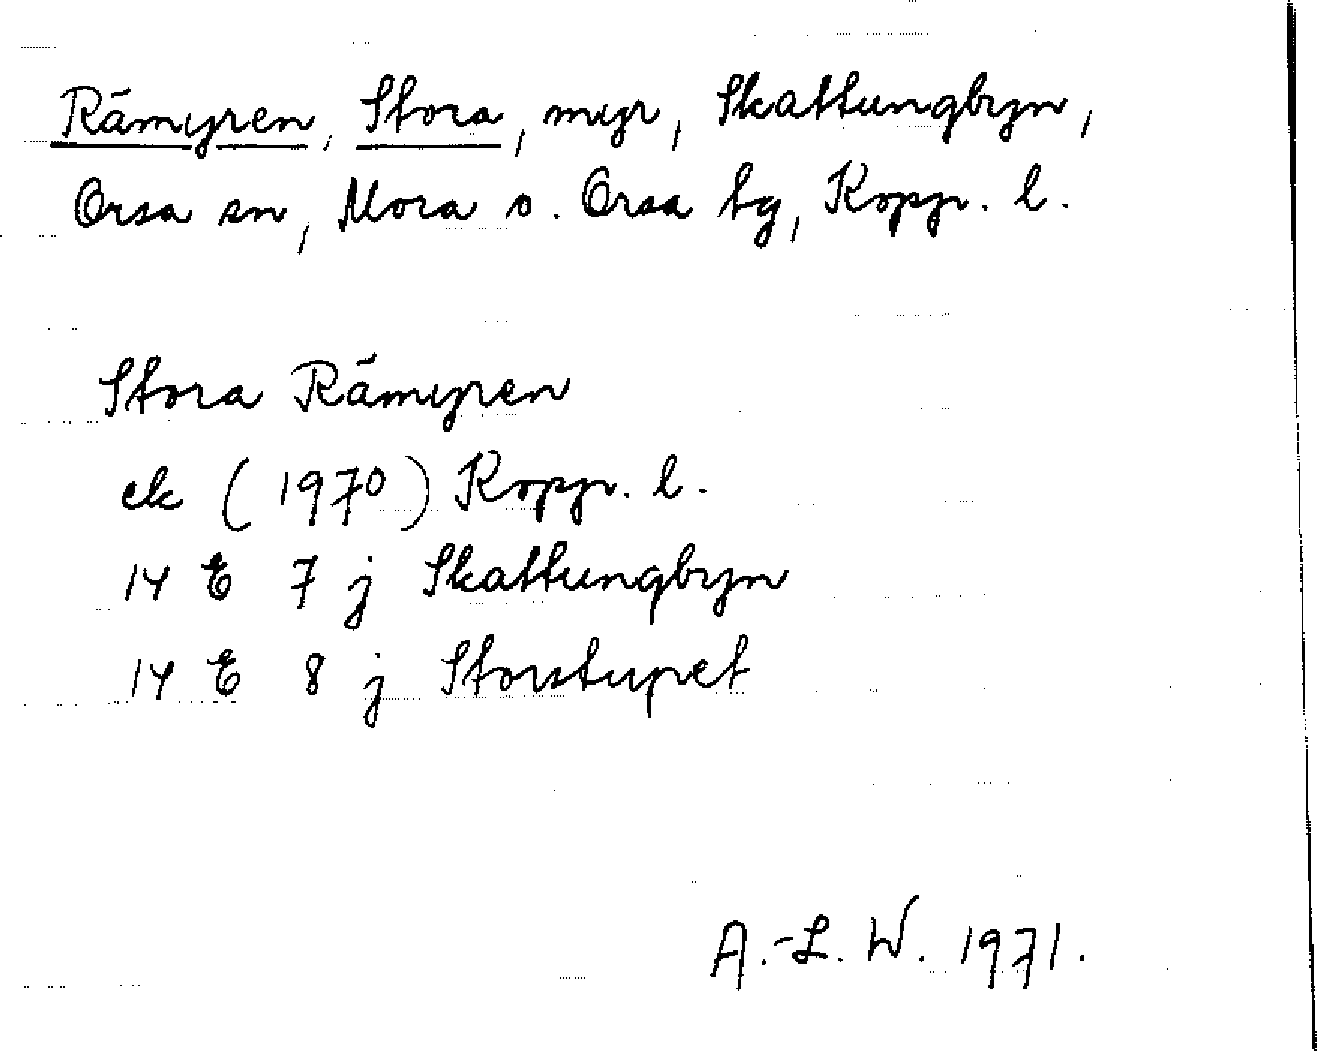 Rämyren, Stora, myr, Skattungbyn,
Orsa sn, Mora o. Orsa tg, Kopp. l.
Stora Rämyren
ek (1970) Kopp. l.
14 E 7 j Skattungbyn
14 E 8 j Storstupet
A.-L. W. 1971.